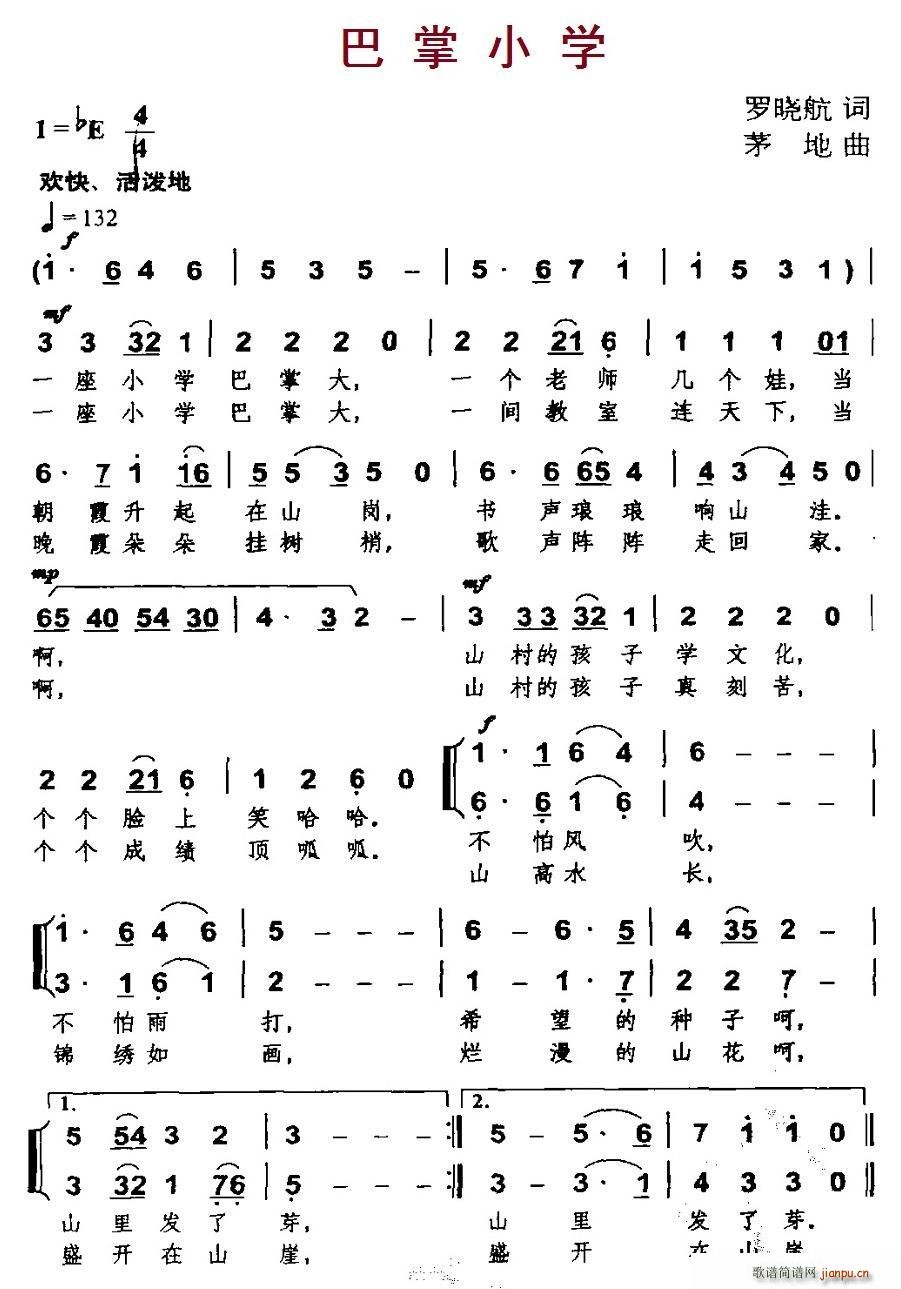 巴掌小学
罗晓航 词
1=♭E 4/4
茅 地 曲
欢快、活泼地
♩=132
f
(1· 6 4 6 | 5 3 5 – | 5· 6 7 1 | 1 5 3 1) |
mf
3 3 32 1 | 2 2 2 0 | 2 2 21 6 | 1 1 1 01 |
一座小学巴掌大, 一个老师几个娃,当
一座小学巴掌大, 一间教室连天下,当
6· 7 1 16 | 5 5 3 5 0 | 6· 6 65 4 | 4 3 4 5 0 |
朝霞升起在山岗, 书声琅琅响山洼.
晚霞朵朵挂树梢, 歌声阵阵走回家.
mp mf
65 40 54 30 | 4· 3 2 – | 3 33 32 1 | 2 2 2 0 |
啊, 山村的孩子学文化,
啊, 山村的孩子真刻苦,
f
1· 1 6 4 | 6 – – – |
2 2 21 6 | 1 2 6 0
6· 6 1 6 | 4 – – –
个个脸上笑哈哈. 不怕风吹,
个个成绩顶呱呱. 山高水长,
1· 6 4 6 | 5 – – – | 6 – 6· 5 | 4 35 2 – |
3· 1 6 1 | 2 – – – | 1 – 1· 7 | 2 2 7 –
不怕雨打, 希望的种子呵,
锦绣如画, 烂漫的山花呵,
1. 2.
5 54 3 2 | 3 – – – :‖ 5 – 5· 6 | 7 1 1 0 ‖
3 32 1 76 | 5 – – – :‖ 3 – 3· 1 | 4 3 3 0 ‖
山里发了芽, 山里发了芽.
盛开在山崖, 盛开在山崖
歌谱简谱网
jianpu.cn